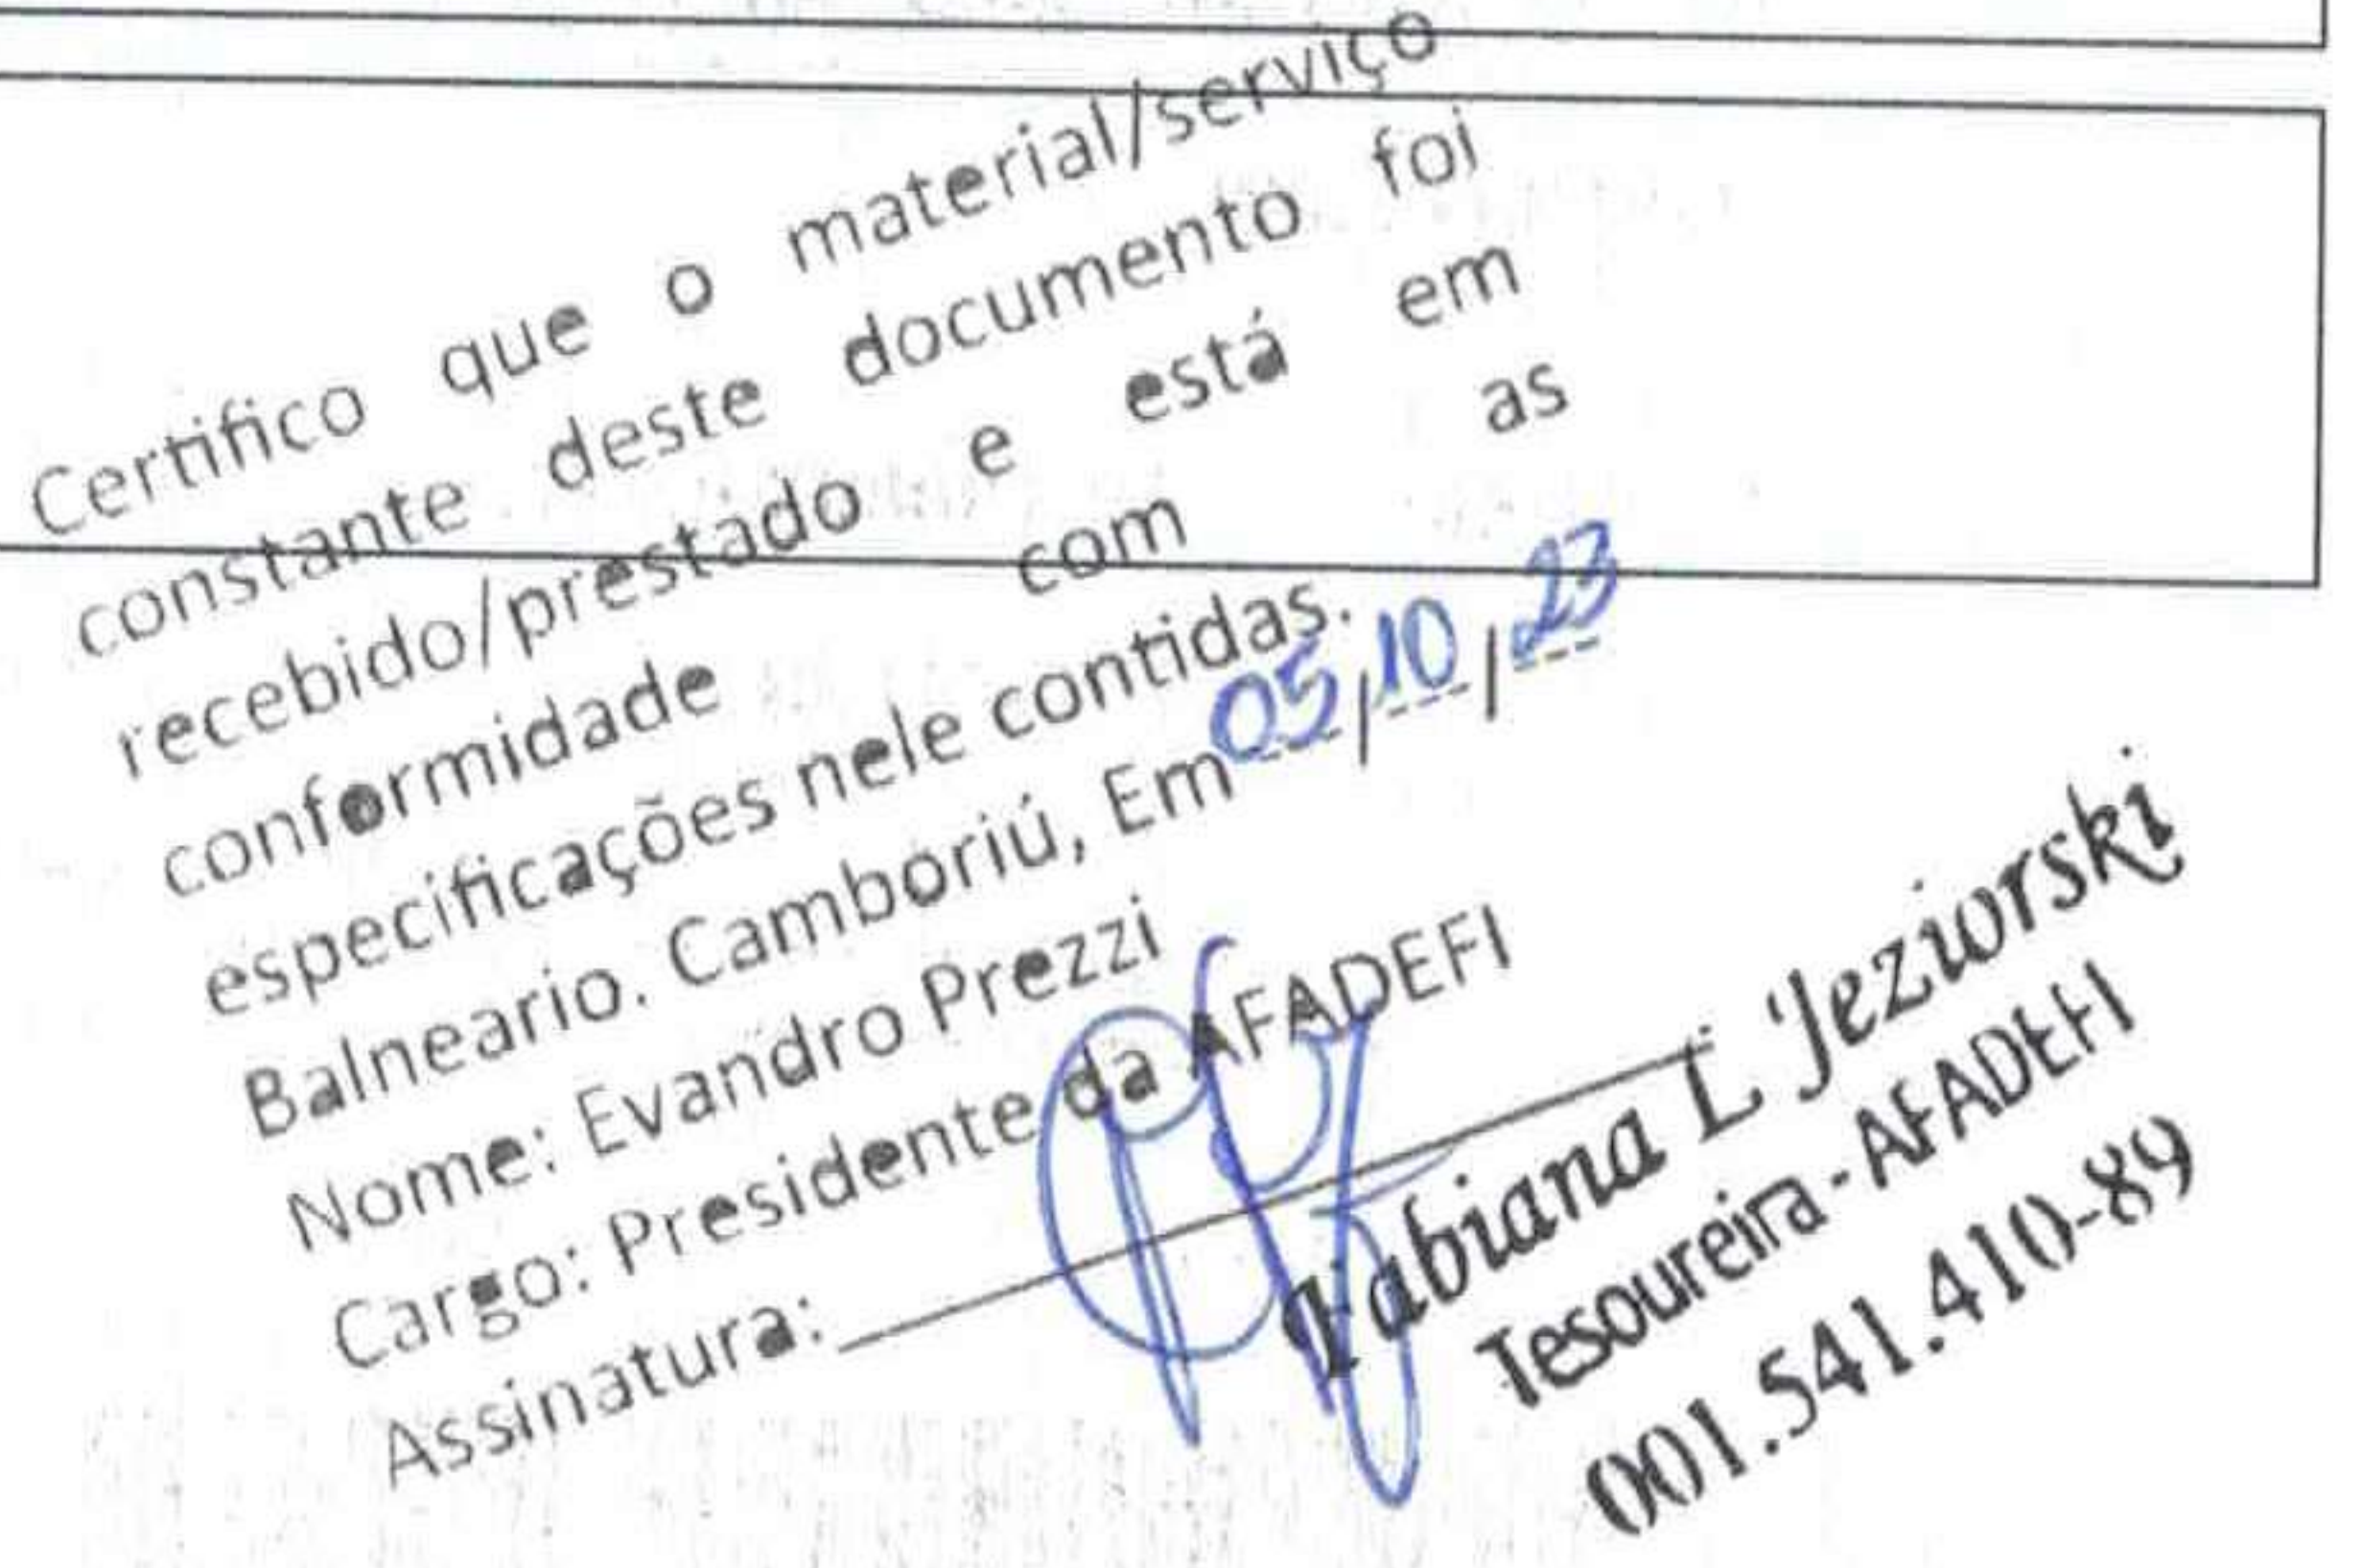 Certifico que o material/serviço
constante deste documento foi
recebido/prestado e está em
conformidade com as
especificações nele contidas.
Balneario. Camboriú, Em 05/10/23
Nome: Evandro Prezzi
Cargo: Presidente da AFADEFI
Assinatura:
Fabiana L Jeziorski
Tesoureira - AFADEFI
001.541.410-89